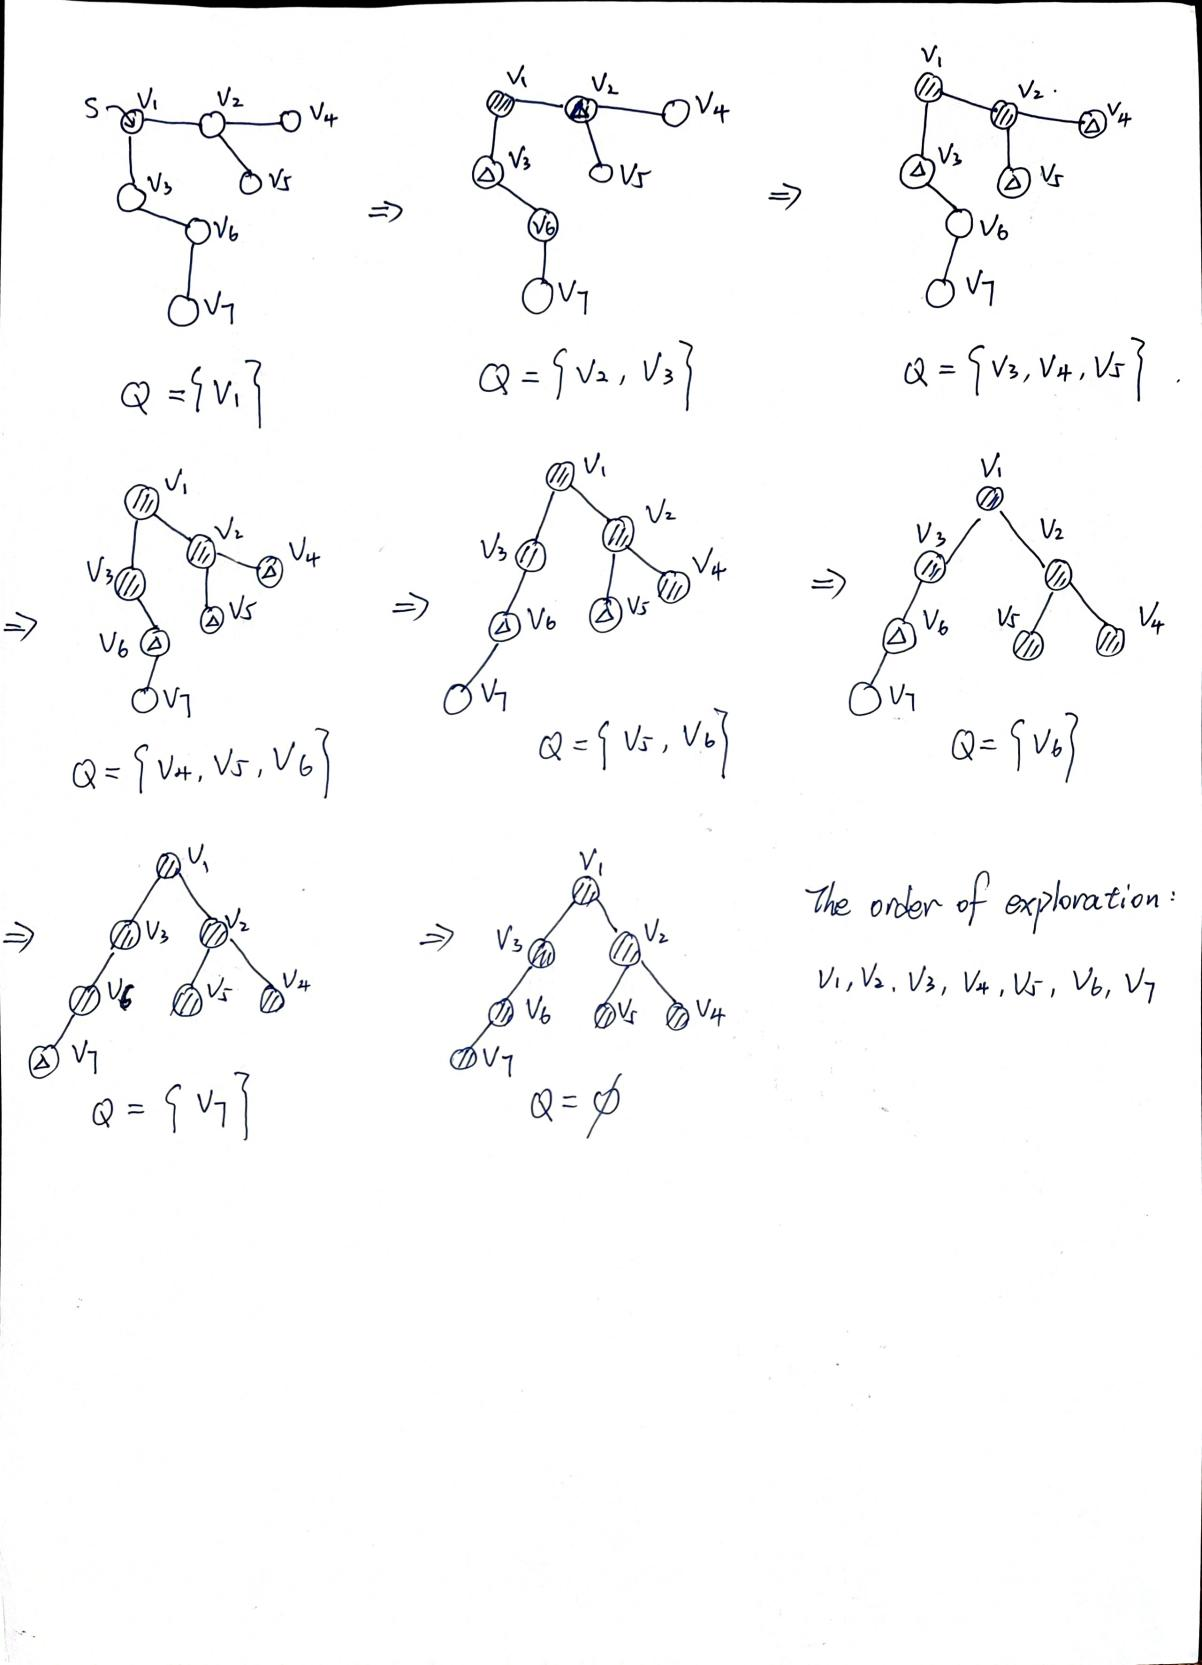 S V1 V2 V4
V3 V5
V6
V7
Q = {V1}
⇒
V1 V2 V4
V3 V5
V6
V7
Q = {V2, V3}
⇒
V1
V2 V4
V3 V5
V6
V7
Q = {V3, V4, V5}
⇒
V1
V2 V4
V3 V5
V6
V7
Q = {V4, V5, V6}
⇒
V1
V2
V3 V4
V6 V5
V7
Q = {V5, V6}
⇒
V1
V3 V2
V6 V5 V4
V7
Q = {V6}
⇒
V1
V3 V2
V6 V5 V4
V7
Q = {V7}
⇒
V1
V3 V2
V6 V5 V4
V7
Q = ∅
The order of exploration:
V1, V2, V3, V4, V5, V6, V7